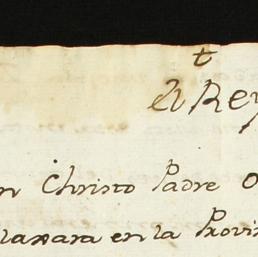 t
el Rey
n Christo Padre O
laxara en la Provin